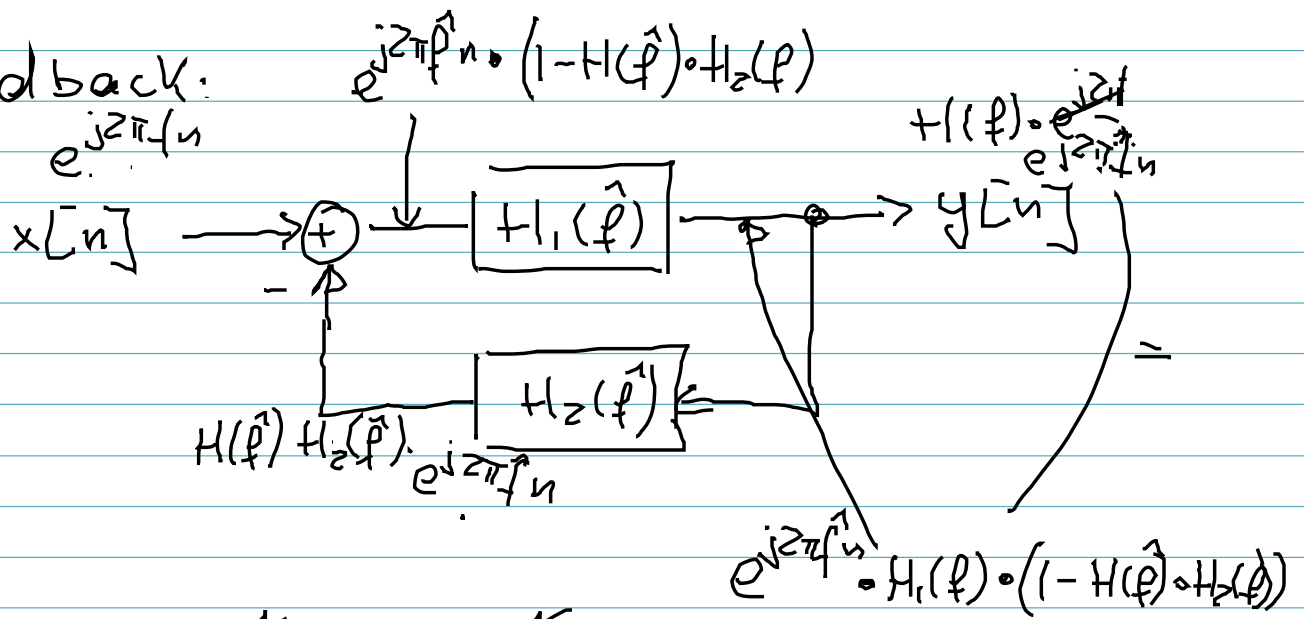 dback:
e^{j2πf̂n} · (1-H(f̂)·H₂(f)
e^{j2πfn}
H(f)·
e^{j2πf̂n}
x[n]
+
H₁(f̂)
y[n]
-
=
H₂(f̂)
H(f̂) H₂(f̂)·
e^{j2πf̂n}
e^{j2πf̂n} · H₁(f)·(1-H(f̂)·H₂(f))